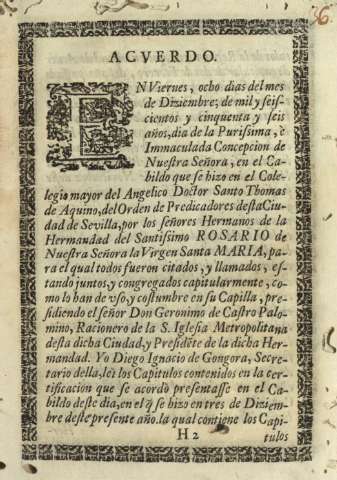 6
ACVERDO.
EN Viernes, ocho dias del mes
de Diziembre, de mil y seis-
cientos y cinquenta y seis
años, dia de la Purissima, è
Immaculada Concepcion de
Nuestra Señora, en el Ca-
bildo que se hizo en el Cole-
legio mayor del Angelico Doctor Santo Thomas
de Aquino, del Orden de Predicadores desta Ciu-
dad de Sevilla, por los señores Hermanos de la
Hermandad del Santissimo ROSARIO de
Nuestra Señora la Virgen Santa MARIA, pa-
ra el qual todos fueron citados, y llamados, es-
tando juntos, y congregados capitularmente, co-
mo lo han de vso, y costumbre en su Capilla, pre-
sidiendo el señor Don Geronimo de Castro Palo-
mino, Racionero de la S. Iglesia Metropolitana
desta dicha Ciudad, y Presidẽte de la dicha Her-
mandad. Yo Diego Ignacio de Gongora, Secre-
tario della, leì los Capitulos contenidos en la cer-
tificacion que se acordò presentasse en el Ca-
bildo deste dia, en el q̃ se hizo en tres de Diziem-
bre deste presente año. la qual contiene los Capi-
H 2 tulos